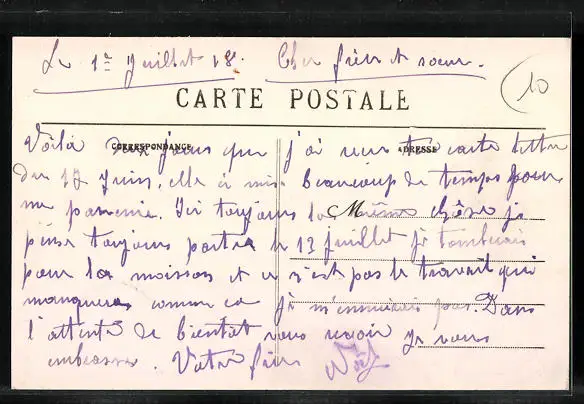 Le 1er Juillet 18. Cher frère et soeur.
10
CARTE POSTALE
CORRESPONDANCE
ADRESSE
Voilà deux jours que j'ai reçu ta carte lettre
du 17 Juin, elle à mis beaucoup de temps pour
me parvenir. Ici toujours la Même chôse je
pense toujours partir le 12 juillet je tomberais
pour la moisson et ce n'est pas le travail qui
manquera comme ça je m'ennuierais pas. Dans
l'attente de bientôt vous revoir je vous
embrasse. Votre frère